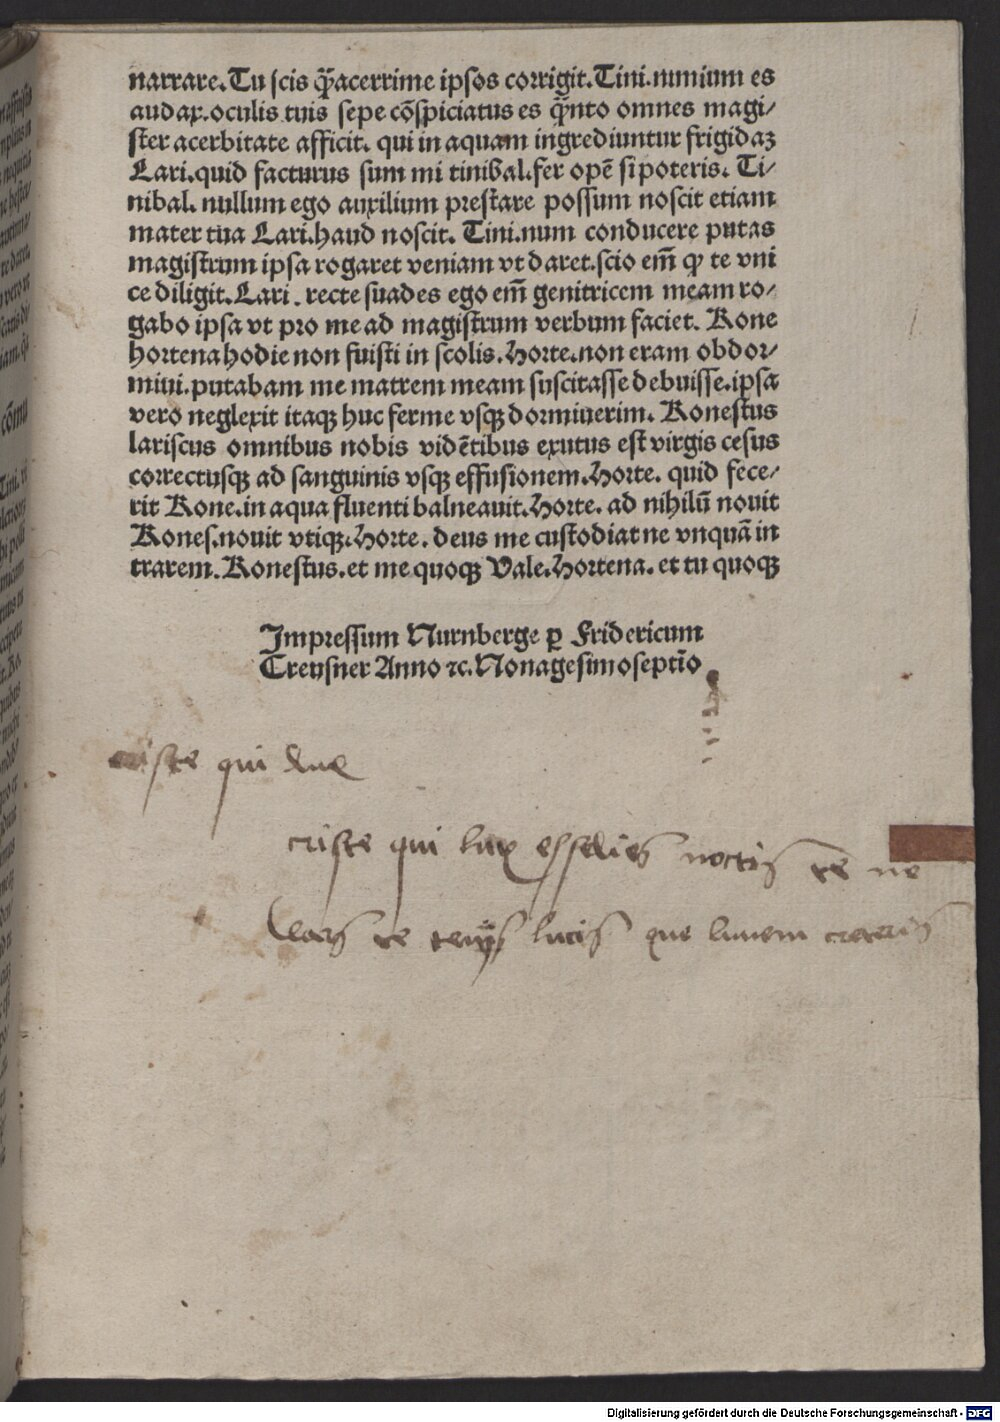 narrare. Tu scis q̃acerrime ipsos corrigit. Tini. nimium es
audax. oculis tuis sepe cõspiciatus es q̃nto omnes magi⸗
ster acerbitate afficit. qui in aquam ingrediuntur frigidaȝ
Lari. quid facturus sum mi tinibal. fer opẽ si poteris. Ti⸗
nibal. nullum ego auxilium prestare possum noscit etiam
mater tua Lari. haud noscit. Tini. num conducere putas
magistrum ipsa rogaret veniam vt daret. scio em̃ ꝙ te vni
ce diligit. Lari. recte suades ego em̃ genitricem meam ro⸗
gabo ipsa vt pro me ad magistrum verbum faciet. Kone
hortena hodie non fuisti in scolis. Horte. non eram obdor⸗
miui. putabam me matrem meam suscitasse debuisse. ipsa
vero neglexit itaqȝ huc ferme vsqȝ dormiuerim. Konestus
lariscus omnibus nobis vidẽtibus exutus est virgis cesus
correctusqȝ ad sanguinis vsqȝ effusionem. Horte. quid fece⸗
rit Kone. in aqua fluenti balneauit. Horte. ad nihilũ nouit
Kones. nouit vtiqȝ. Horte. deus me custodiat ne vnquã in
trarem. Konestus. et me quoqȝ Vale. Hortena. et tu quoqȝ
Impressum Nurnberge ꝑ Fridericum
Creusner Anno ⁊c. Nonagesimoseptĩo
criste qui
criste qui lux es et dies noctis te ne
te lucis que lumem